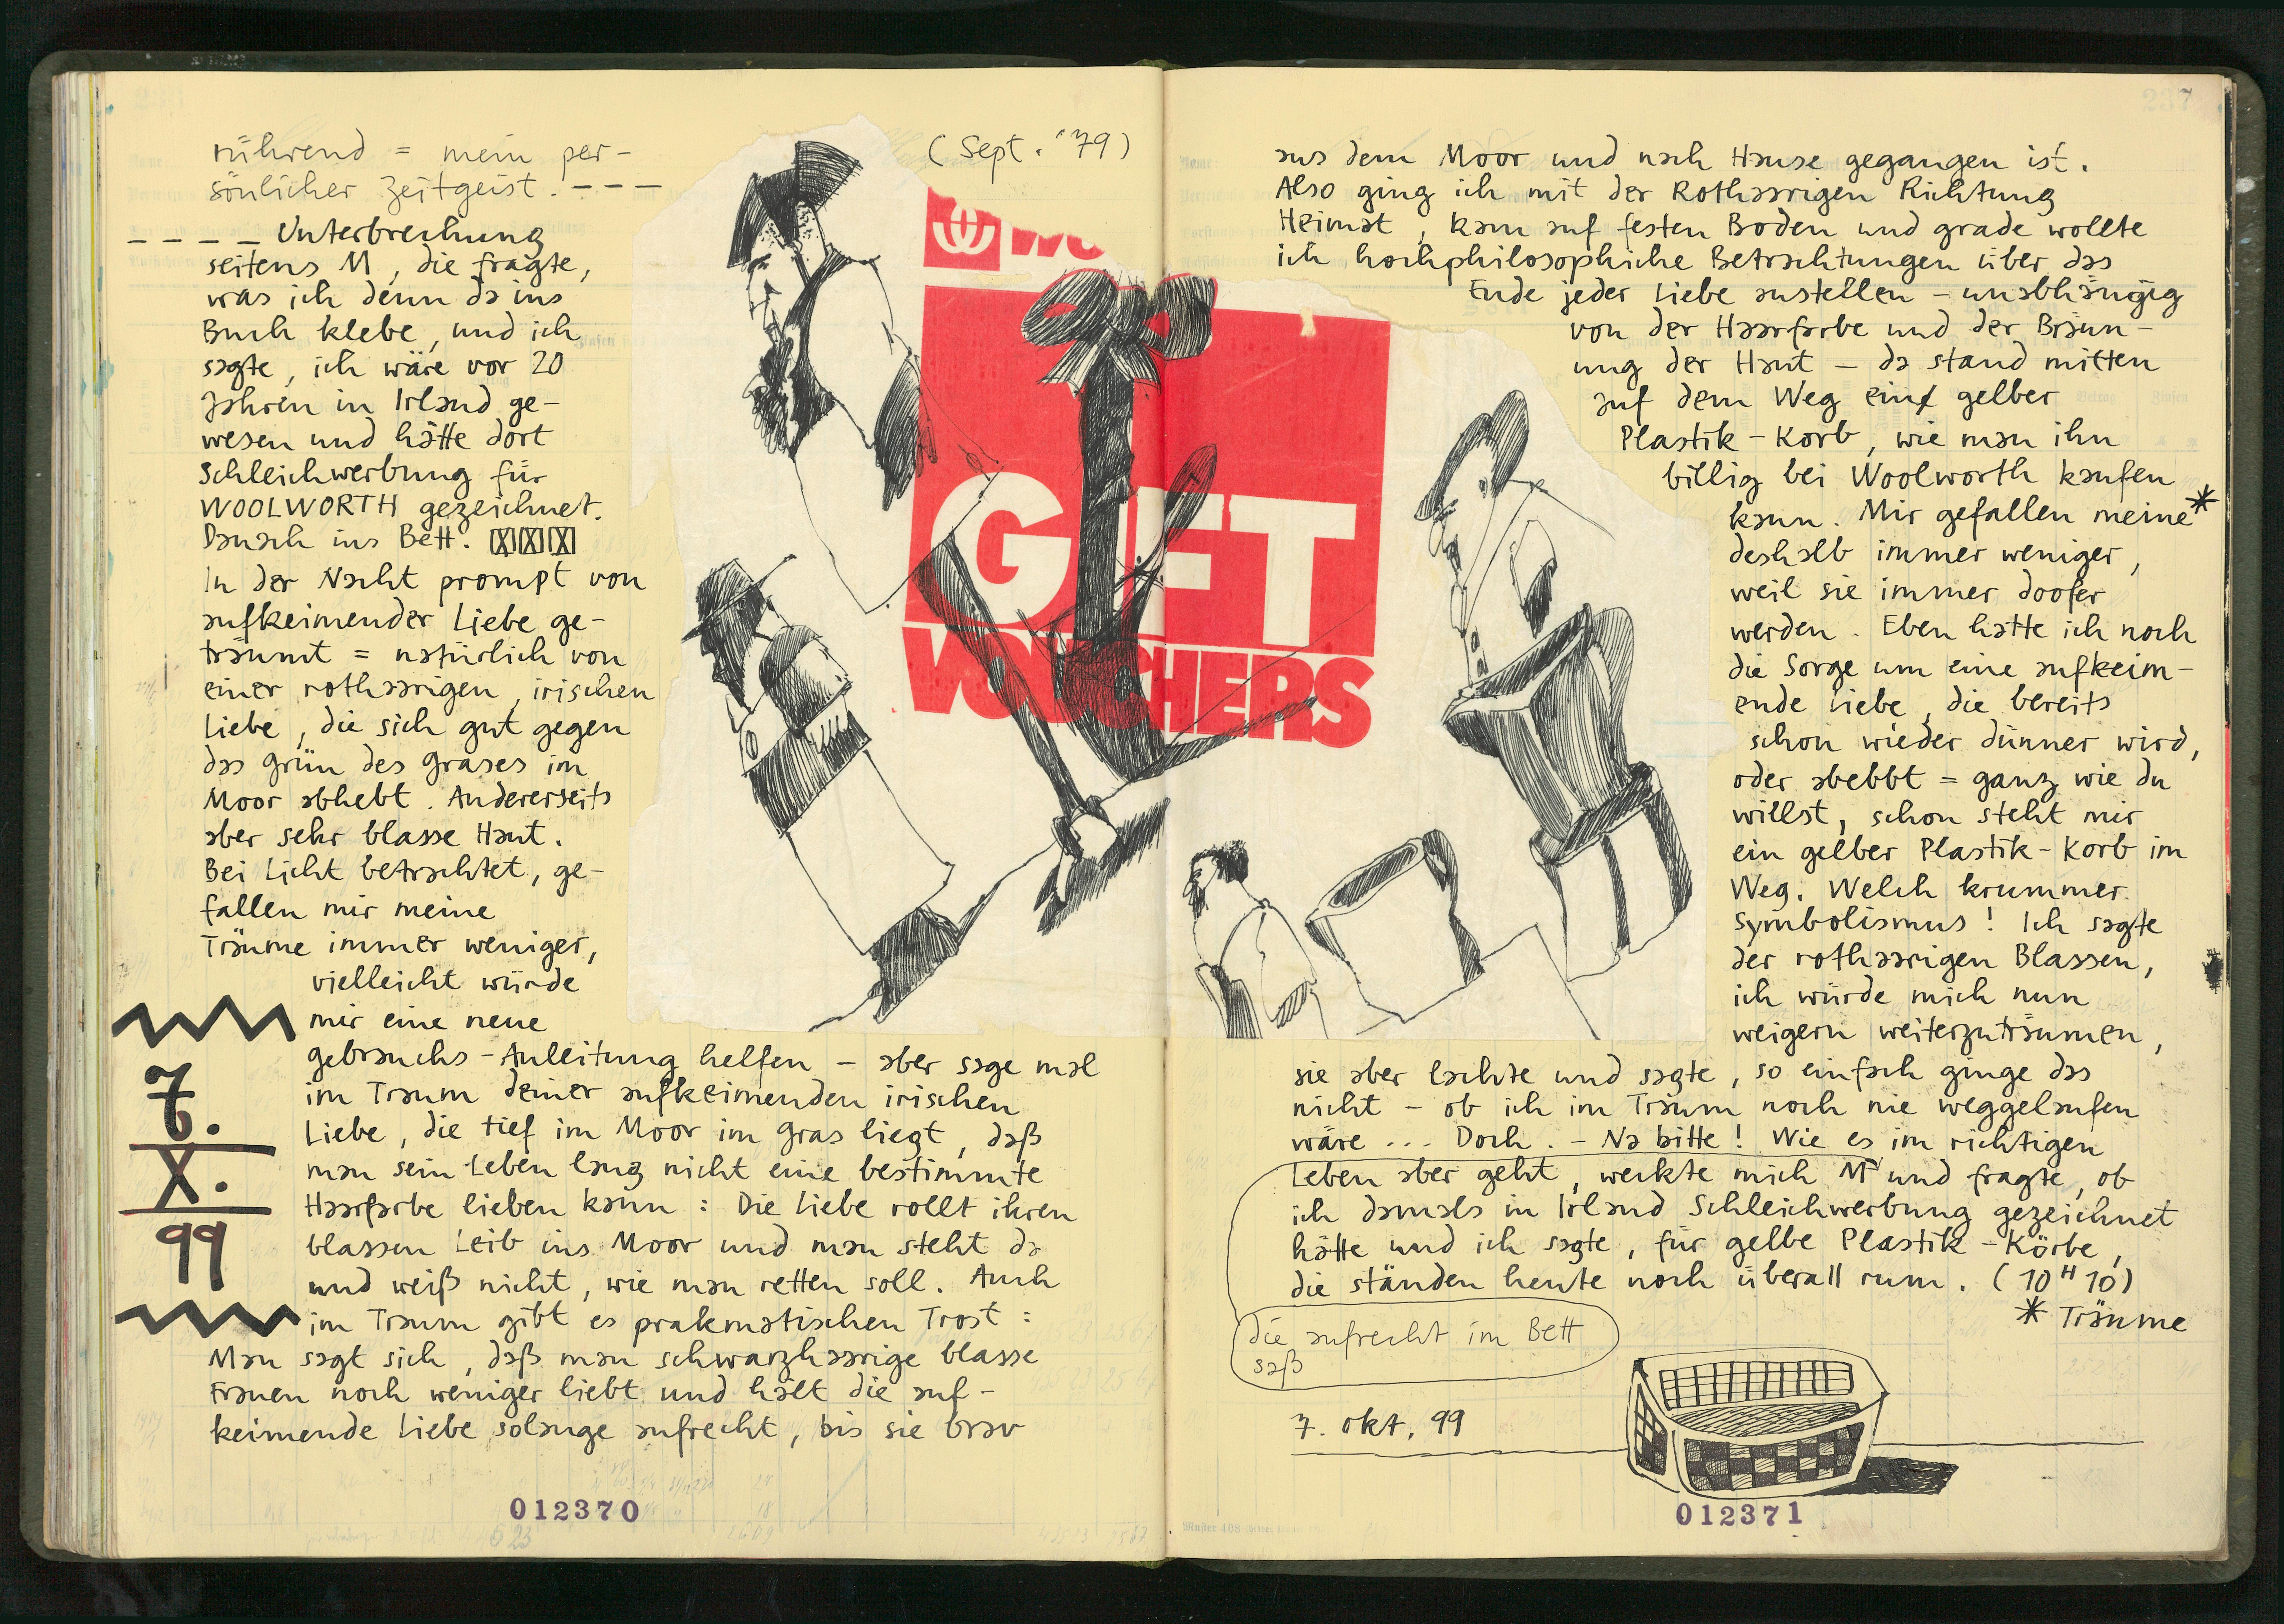 rührend = mein per-
sönlicher Zeitgeist. - - -
- - - - Unterbrechung
seitens M, die fragte,
was ich denn da ins
Buch klebe, und ich
sagte, ich wäre vor 20
Jahren in Irland ge-
wesen und hätte dort
Schleichwerbung für
WOOLWORTH gezeichnet.
Danach ins Bett.
In der Nacht prompt von
aufkeimender Liebe ge-
träumt = natürlich von
einer rothaarigen, irischen
Liebe, die sich gut gegen
das Grün des Grases im
Moor abhebt. Andererseits
aber sehr blasse Haut.
Bei Licht betrachtet, ge-
fallen mir meine
Träume immer weniger,
vielleicht würde
mir eine neue
Gebrauchs-Anleitung helfen - aber sage mal
im Traum deiner aufkeimenden irischen
Liebe, die tief im Moor im Gras liegt, daß
man sein Leben lang nicht eine bestimmte
Haarfarbe lieben kann: Die Liebe rollt ihren
blassen Leib ins Moor und man steht da
und weiß nicht, wie man retten soll. Auch
im Traum gibt es prakmatischen Trost:
Man sagt sich, daß man schwarzhaarige blasse
Frauen noch weniger liebt und hält die auf-
keimende Liebe solange aufrecht, bis sie brav
7.
X.
99
012370
(Sept. "79)
WO
GIFT
VOUCHERS
237
aus dem Moor und nach Hause gegangen ist.
Also ging ich mit der Rothaarigen Richtung
Heimat, kam auf festen Boden und grade wollte
ich hochphilosophiche Betrachtungen über das
Ende jeder Liebe anstellen - unabhängig
von der Haarfarbe und der Bräun-
ung der Haut - da stand mitten
auf dem Weg ein gelber
Plastik-Korb, wie man ihn
billig bei Woolworth kaufen
kann. Mir gefallen meine*
deshalb immer weniger,
weil sie immer doofer
werden. Eben hatte ich noch
die Sorge um eine aufkeim-
ende Liebe, die bereits
schon wieder dünner wird,
oder abebbt = ganz wie du
willst, schon steht mir
ein gelber Plastik-Korb im
Weg. Welch krummer
Symbolismus! Ich sagte
der rothaarigen Blassen,
ich würde mich nun
weigern weiterzuträumen,
sie aber lachte und sagte, so einfach ginge das
nicht - ob ich im Traum noch nie weggelaufen
wäre ... Doch. - Na bitte! Wie es im richtigen
Leben aber geht, weckte mich M und fragte, ob
ich damals in Irland Schleichwerbung gezeichnet
hätte und ich sagte, für gelbe Plastik-Körbe,
die ständen heute noch überall rum. (10 H 10)
* Träume
die aufrecht im Bett
saß
7. Okt. 99
012371